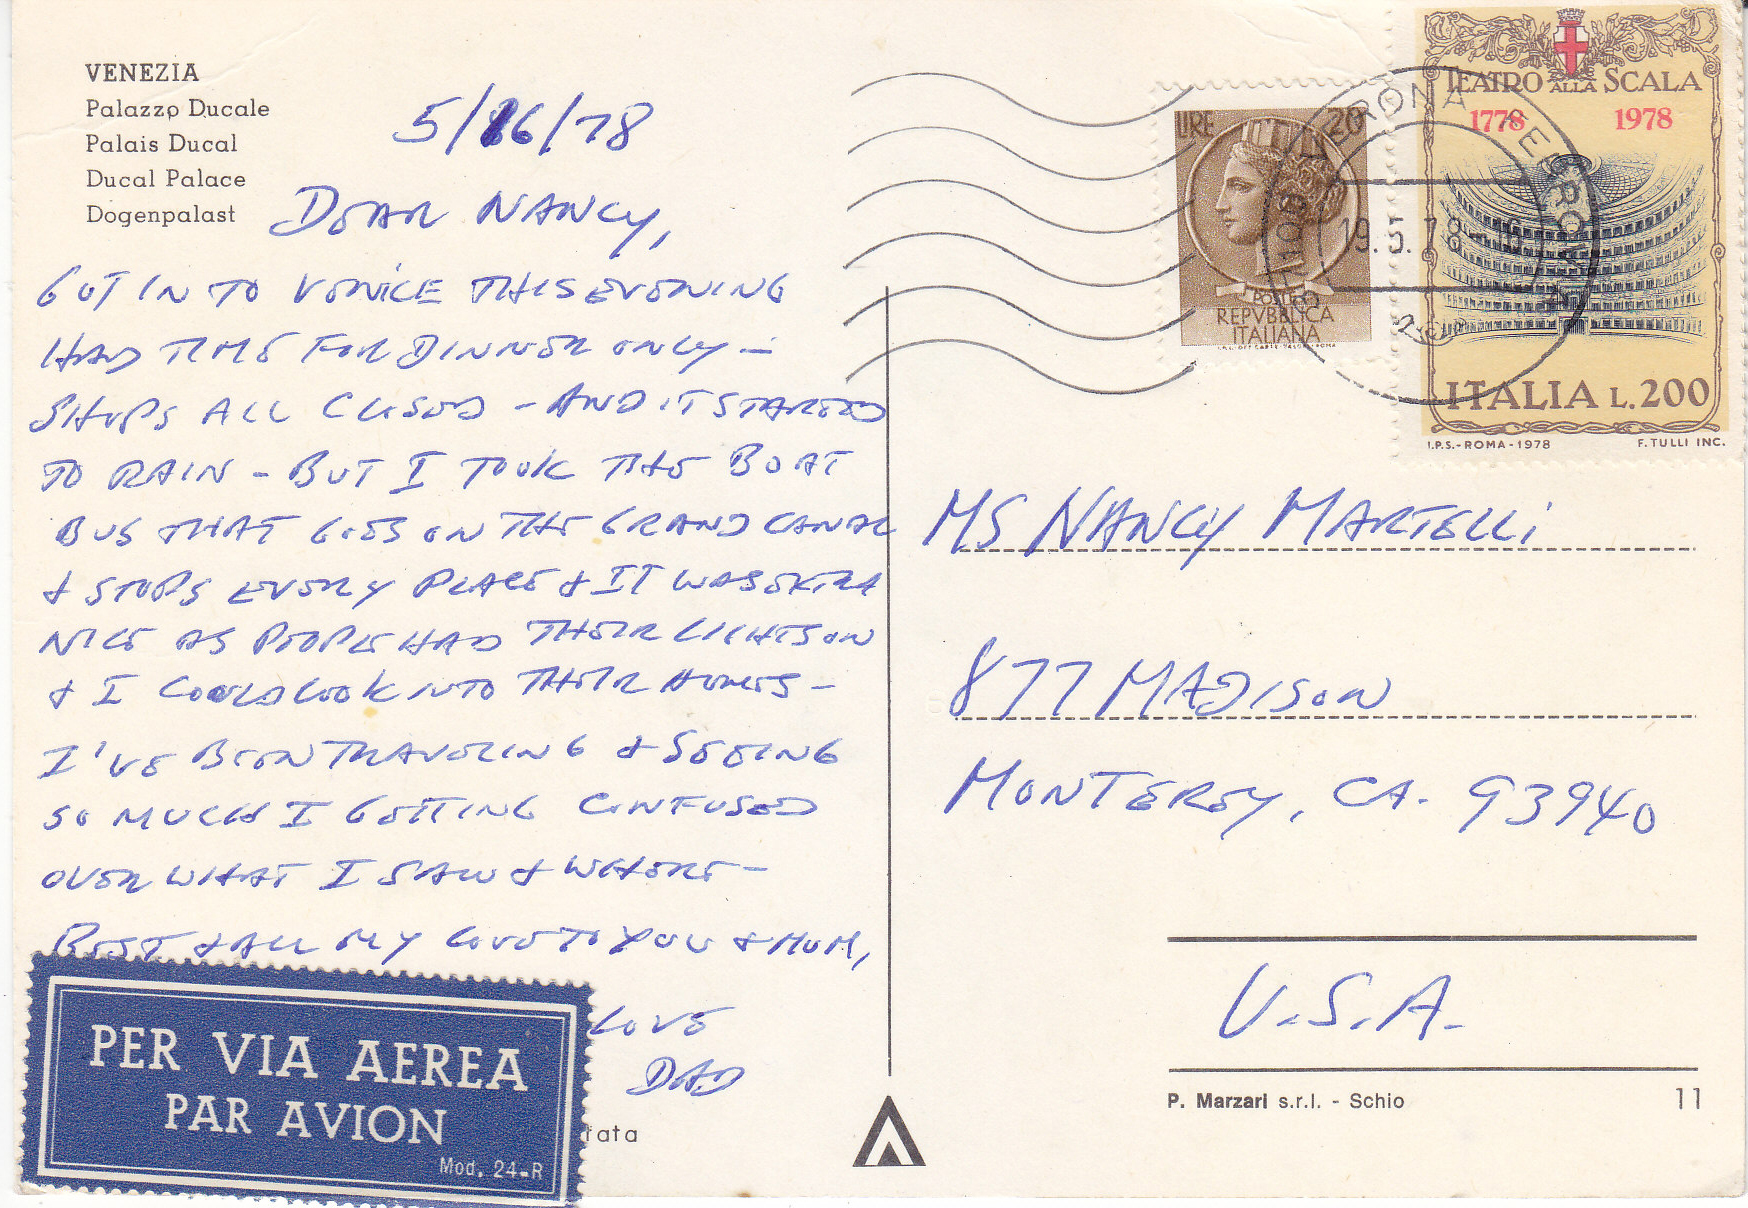 VENEZIA
Palazzo Ducale
Palais Ducal
Ducal Palace
Dogenpalast
5/16/78
DEAR NANCY,
GOT IN TO VENICE THIS EVENING
HAD TIME FOR DINNER ONLY —
SHOPS ALL CLOSED - AND IT STARTED
TO RAIN - BUT I TOOK THE BOAT
BUS THAT GOES ON THE GRAND CANAL
& STOPS EVERY PLACE & IT WAS EXTRA
NICE AS PEOPLE HAD THEIR LIGHTS ON
& I COULD LOOK INTO THEIR HOMES -
I'VE BEEN TRAVELING & SEEING
SO MUCH I GETTING CONFUSED
OVER WHAT I SAW & WHERE -
BEST & ALL MY LOVE TO YOU & MOM,
LOVE
DAD
PER VIA AEREA
PAR AVION
Mod. 24-R
tata
LIRE 20
POSTE
REPVBBLICA
ITALIANA
TEATRO ALLA SCALA
1778 1978
ITALIA L.200
I.P.S.-ROMA-1978 F. TULLI INC.
19.5.78
MS NANCY MARTELLI
877 MADISON
MONTEREY, CA. 93940
U.S.A.
P. Marzari s.r.l. - Schio
11